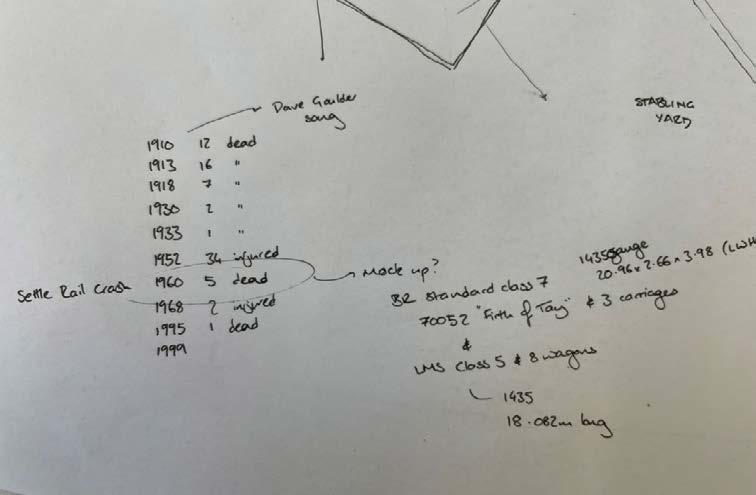 Dave Goulder
song
STABLING
YARD
1910 12 dead
1913 16 "
1918 7 "
1930 2 "
1933 1 "
1952 34 injured
Settle Rail Crash 1960 5 dead
1968 2 injured
1995 1 dead
1999
Mock up?
1435 gauge
20.96 x 2.66 x 3.98 (LWH
BR Standard class 7
70052 "Firth of Tay" & 3 carriages
&
LMS Class 5 & 8 wagons
1435
18.082m long